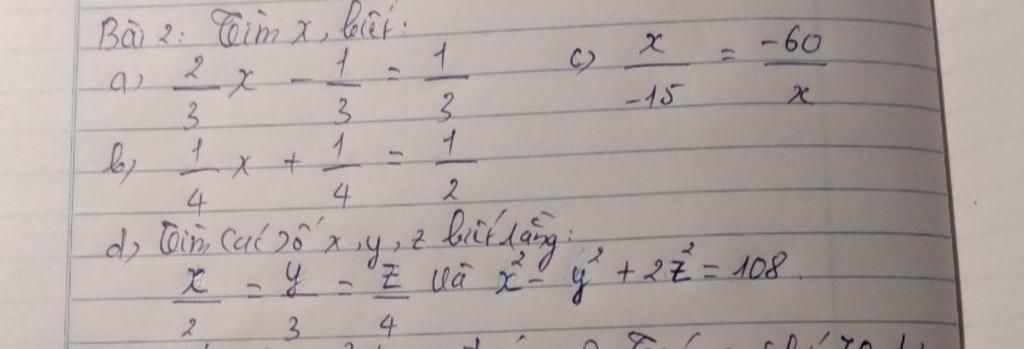 Bài 2: Tìm x, biết:
a) 2/3 x - 1/3 = 1/3
c) x/-15 = -60/x
b) 1/4 x + 1/4 = 1/2
d) Tìm các số x, y, z biết rằng:
x/2 = y/3 = z/4 và x² - y² + 2z² = 108.